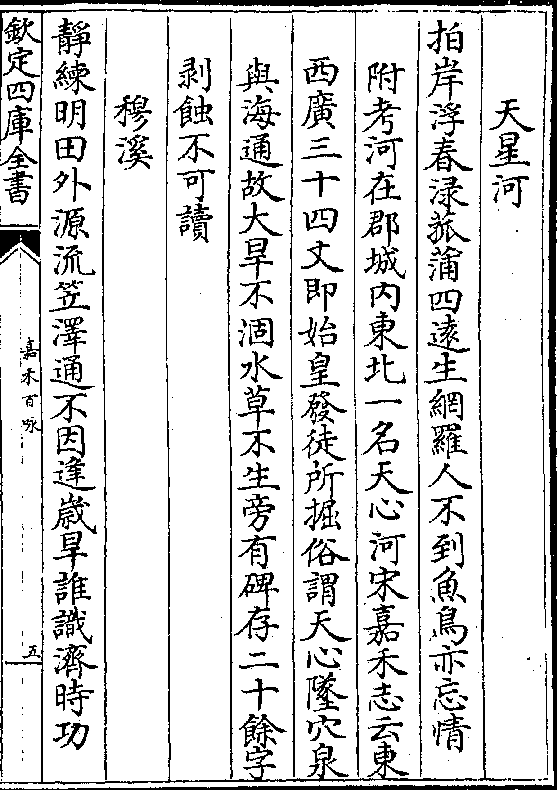 天星河
拍岸浮春渌菰蒲四遠生網羅人不到魚鳥亦忘情
附考河在郡城内東北一名天心河宋嘉禾志云東
西廣三十四丈即始皇發徒所掘俗謂天心墜穴泉
與海通故大旱不涸水草不生旁有碑存二十餘字
剥蝕不可讀
穆溪
靜練明田外源流笠澤通不因逢歲旱誰識濟時功
欽定四庫全書
嘉禾百咏
五